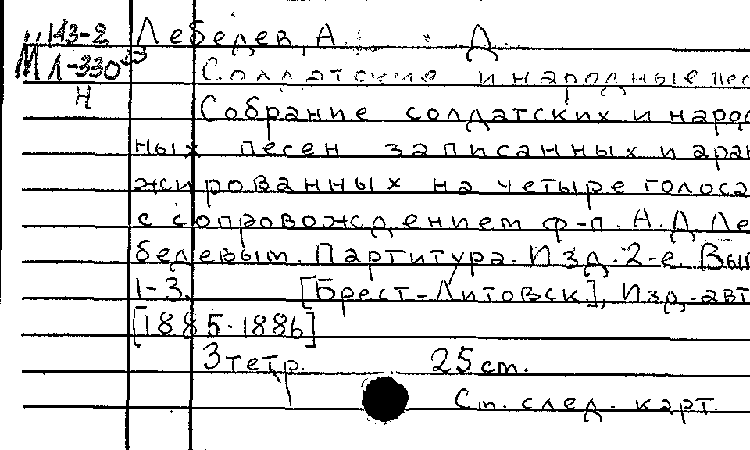 143-2
Мл-330
Н
Лебедев, А. Д.
Солдатские и народные пес
Собрание солдатских и народ
ных песен записанных и аран
жированных на четыре голоса
с сопровождением ф-п. А.Д. Ле
бедевым. Партитура. Изд. 2-е. Вып
1-3. [Брест-Литовск], Изд. авт
[1885-1886]
3 тетр. 25 ст.
Сп. след. карт.